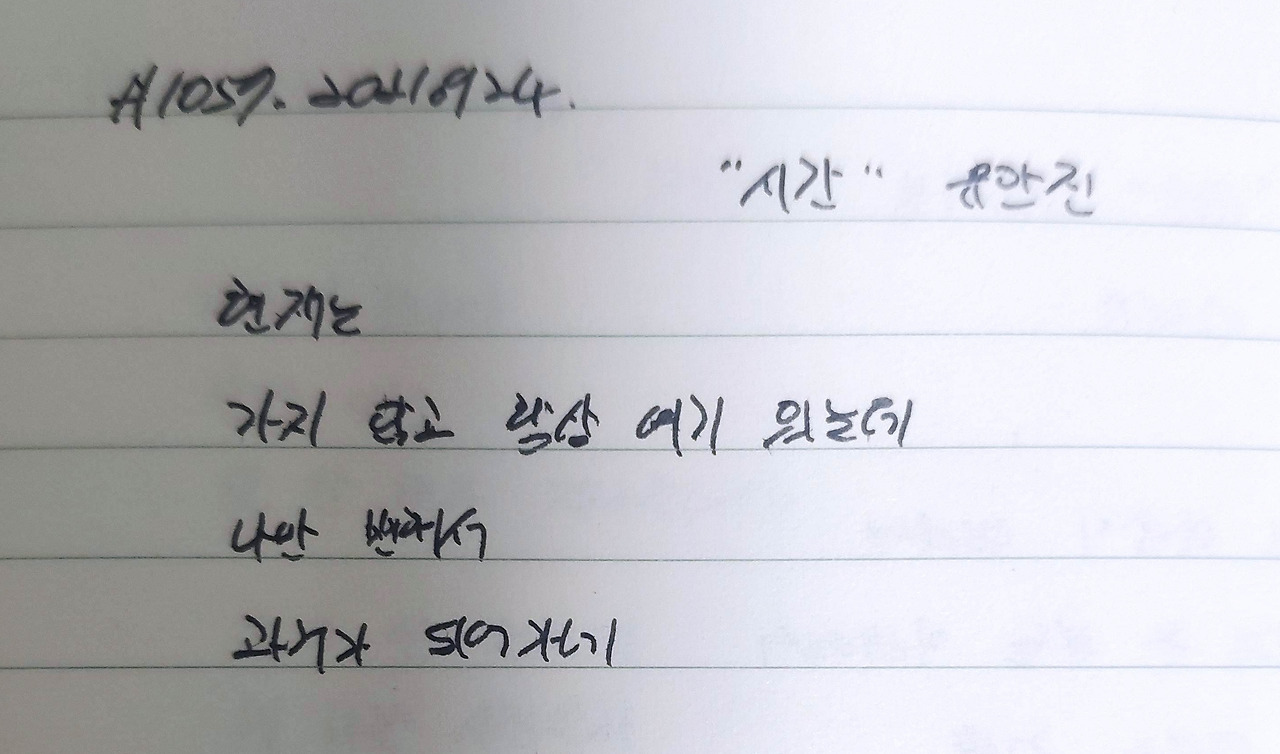 #1057. 20210924.
"시간" 유안진
현재는
가지 않고 항상 여기 있는데
나만 변해서
과거가 되어가네